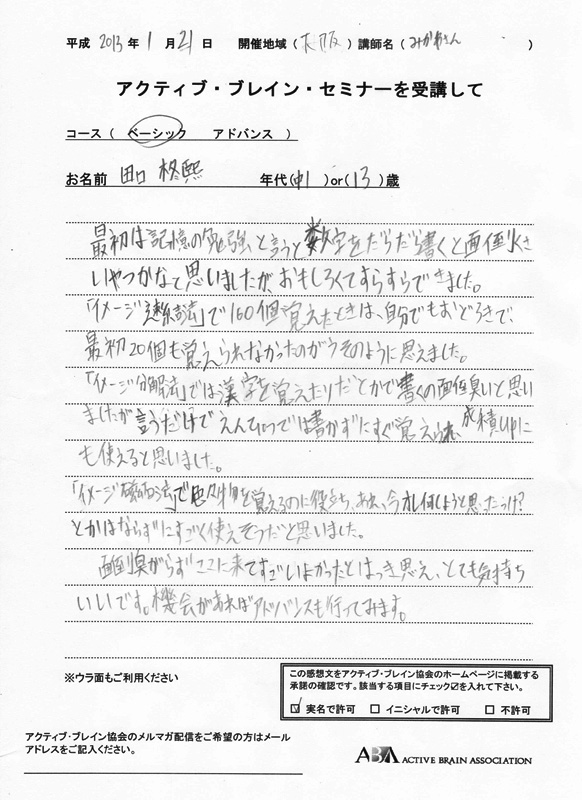 平成 2013 年 1 月 21 日 開催地域（大阪）講師名（みかわさん）
アクティブ・ブレイン・セミナーを受講して
コース（ ベーシック アドバンス ）
お名前 田口 柊熙 年代（中1）or（13）歳
最初は記憶の勉強と言うと数字をだらだら書くと面倒くさ
いやつかなと思いましたが、おもしろくてすらすらできました。
「イメージ連結法」で160個覚えたときは、自分でもおどろきで、
最初20個も覚えられなかったのがうそのように思えました。
「イメージ分解法」では漢字を覚えたりだとかで書くの面倒臭いと思い
ましたが言うだけでえんぴつでは書かずにすぐ覚えられ、成積UPに
も使えると思いました。
「イメージ 法」で 物を覚えるのに役立ち、ああ、今オレ何しようと思ったっけ？
とかはならずにすごく使えそうだと思いました。
面倒臭がらずここに来てすごいよかったとはっき思え、とても気持ち
いいです。機会があればアドバンスも行ってみます。
※ウラ面もご利用ください
この感想文をアクティブ・ブレイン協会のホームページに掲載する
承諾の確認です。該当する項目にチェック☑を入れて下さい。
☑ 実名で許可 □ イニシャルで許可 □ 不許可
アクティブ・ブレイン協会のメルマガ配信をご希望の方はメール
アドレスをご記入ください。
ABA ACTIVE BRAIN ASSOCIATION